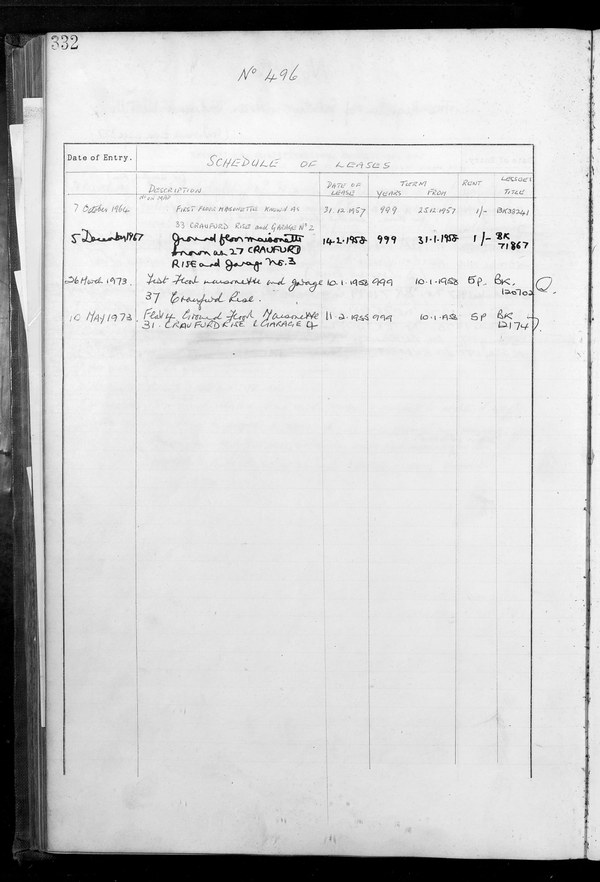 332
No 496
Date of Entry. SCHEDULE OF LEASES
DESCRIPTION DATE OF LEASE TERM YEARS FROM RENT LESSEE'S TITLE
7 October 1964 FIRST FLOOR MAISONETTE KNOWN AS 31.12.1957 999 25.12.1957 1/- BK38241
33 CRAUFURD RISE and GARAGE No 2
5 December 1967 Ground floor maisonette 14.2.1958 999 31.1.1958 1/- BK
known as 27 CRAUFURD 71867
RISE and Garage No. 3
26 March 1973. First Floor maisonette and garage 10.1.1958 999 10.1.1958 5p. BK.
37 Craufurd Rise. 120702 Q.
10 MAY 1973. Flat 4 Ground Floor Maisonette 11.2.1958 999 10.1.1958 5P BK
31. CRAUFURD RISE & GARAGE 4